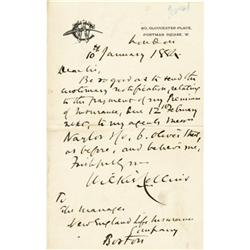 90, GLOUCESTER PLACE,
PORTMAN SQUARE, W.
London
10th January 1884
Dear Sir,
Be so good as to send the
customary notification, relating
to the payment of my Premium
of Insurance, due 12th February
next, to my agents Messrs
Naylor & Co, 6. Oliver Street,
as before, and believe me,
Faithfully yrs
Wilkie Collins
To
The Manager
New England Life Insurance
Company
Boston